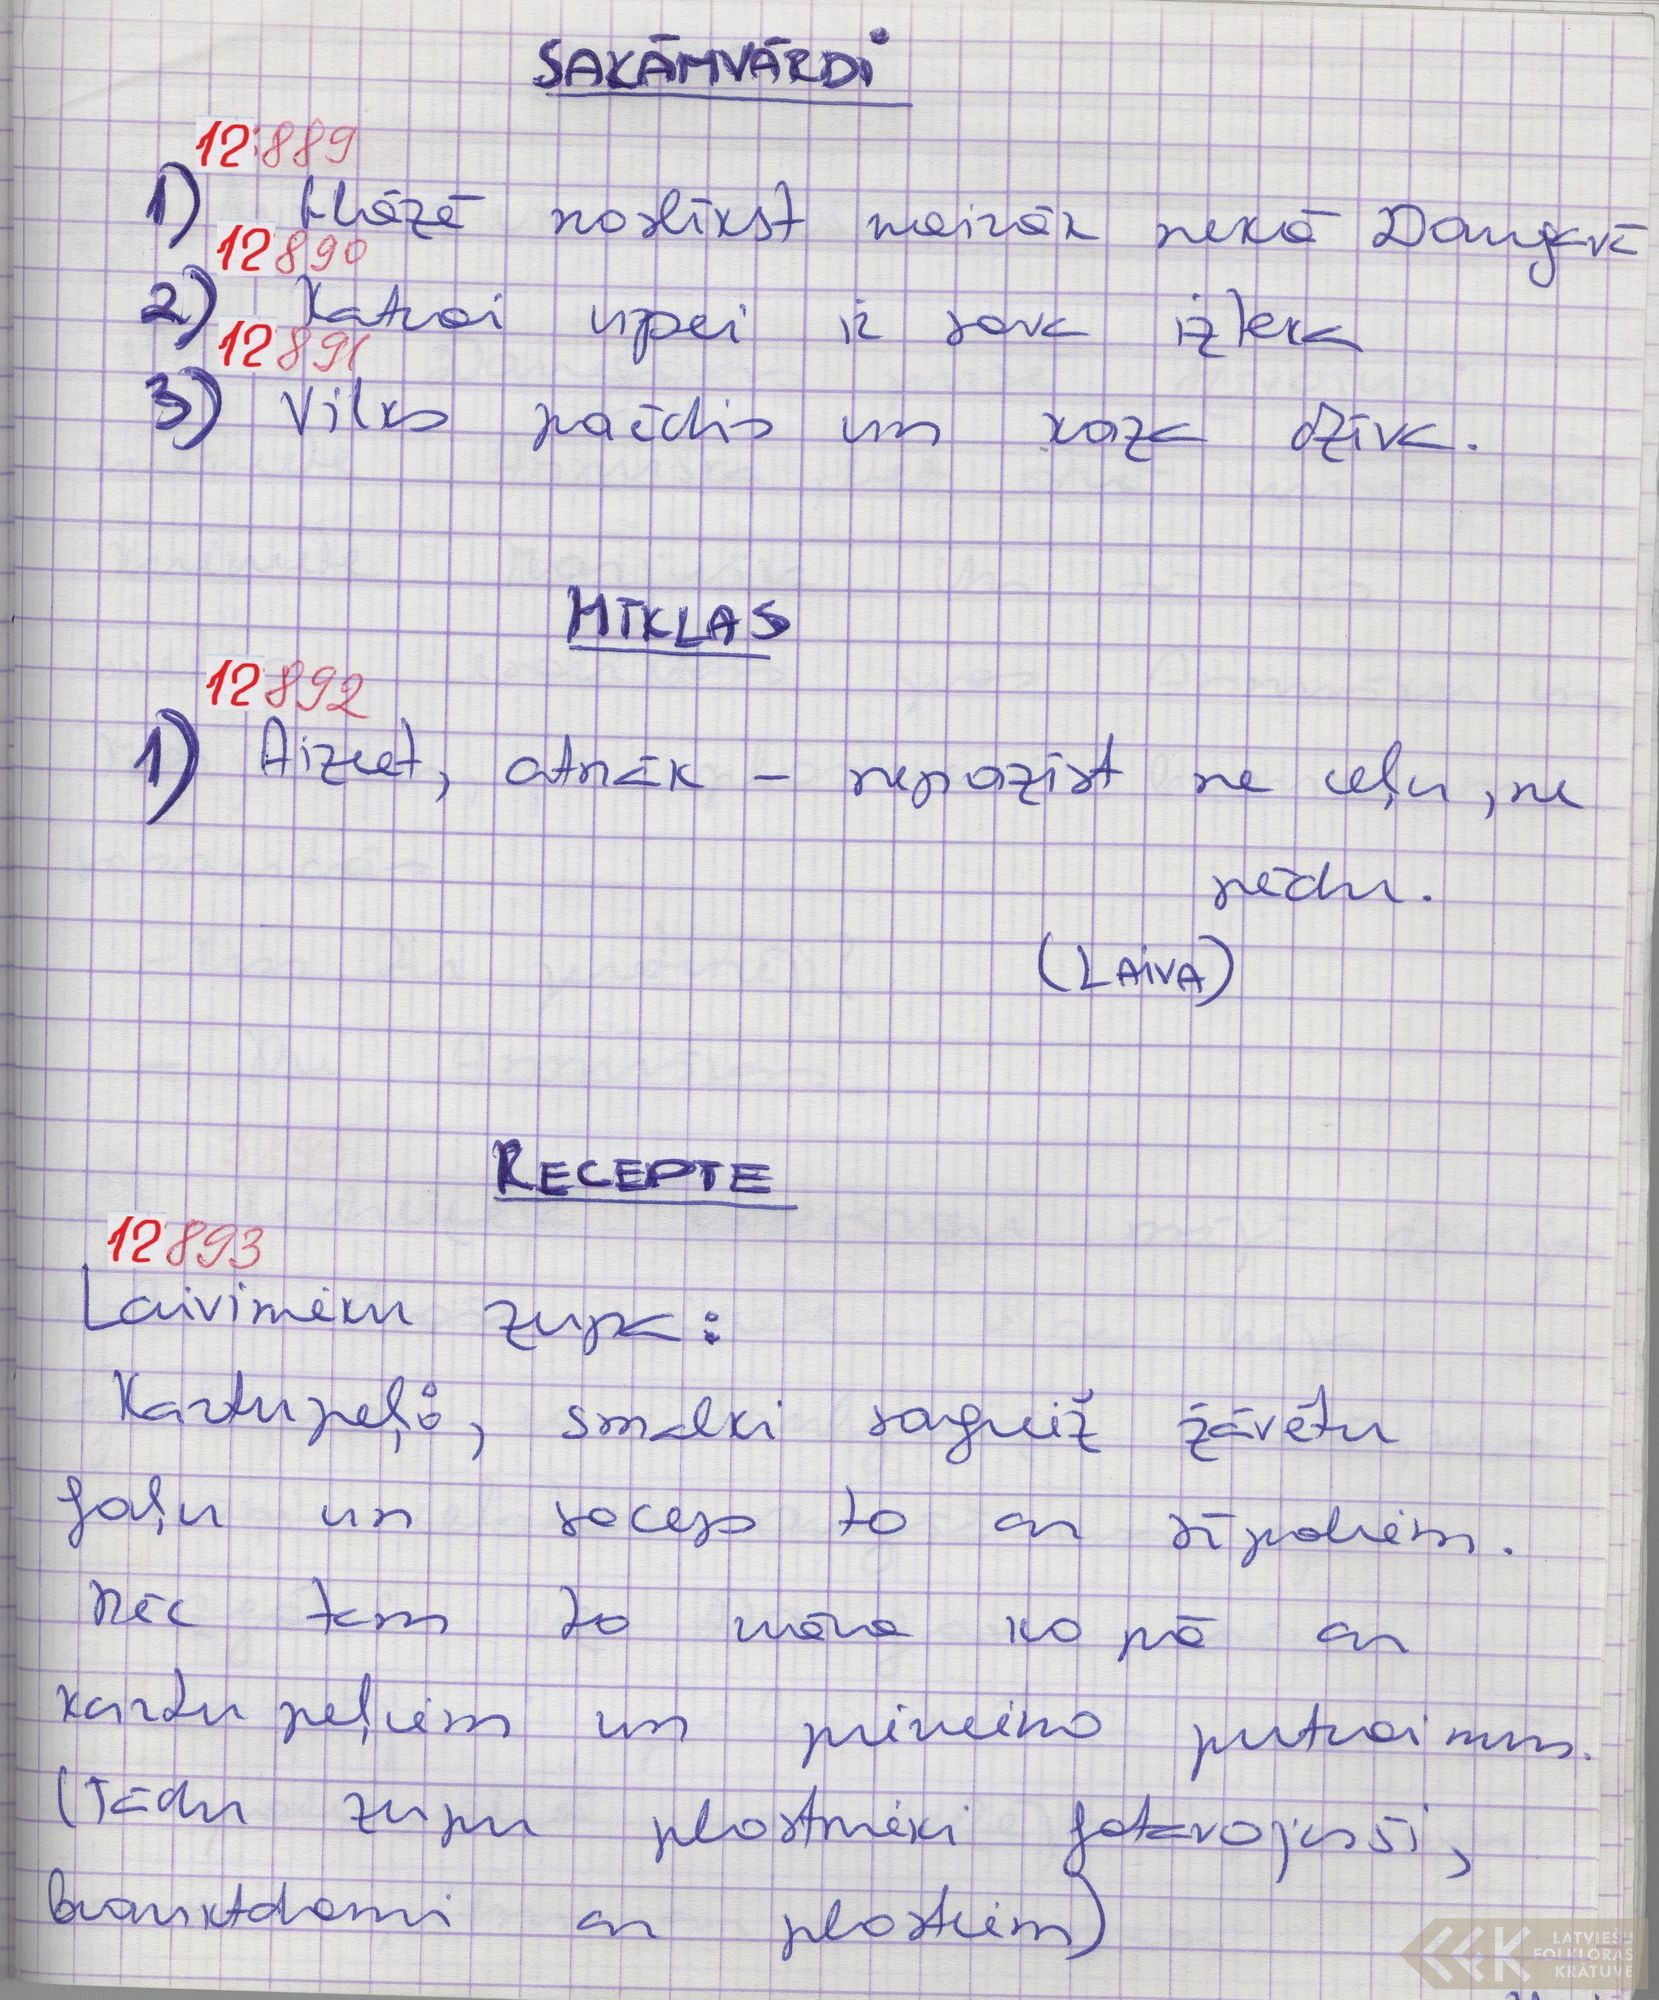 SAKĀMVĀRDI
12889
1) Glāzē noslīkst vairāk nekā Daugavā
12890
2) Katrai upei ir sava izteka
12891
3) Vilks paēdis un kaza dzīva.
MĪKLAS
12892
1) Aiziet, atnāk – nepazīst ne ceļu, ne
pēdu.
(LAIVA)
RECEPTE
12893
Laivinieku zupa:
Kartupeļi, smalki sagriež žāvētu
gaļu un sacep to ar sīpoliem.
Pēc tam to vāra kopā ar
kartupeļiem un pievieno putraimus.
(Tādu zupu plostnieki gatavojuši,
braukdami ar plostiem)
LATVIEŠU
FOLKLORAS
KRĀTUVE